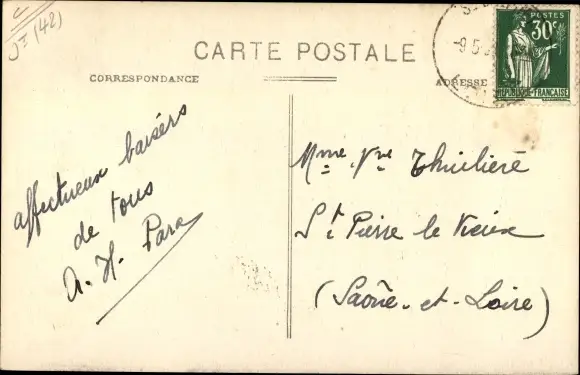 Jt (42)
CARTE POSTALE
CORRESPONDANCE
ADRESSE
POSTES
30c
RÉPUBLIQUE-FRANÇAISE
-9.5
affectueux baisers
de tous
A. H. Para
Mme Vve Thuilière
St Pierre le Vieux
(Saône-et-Loire)